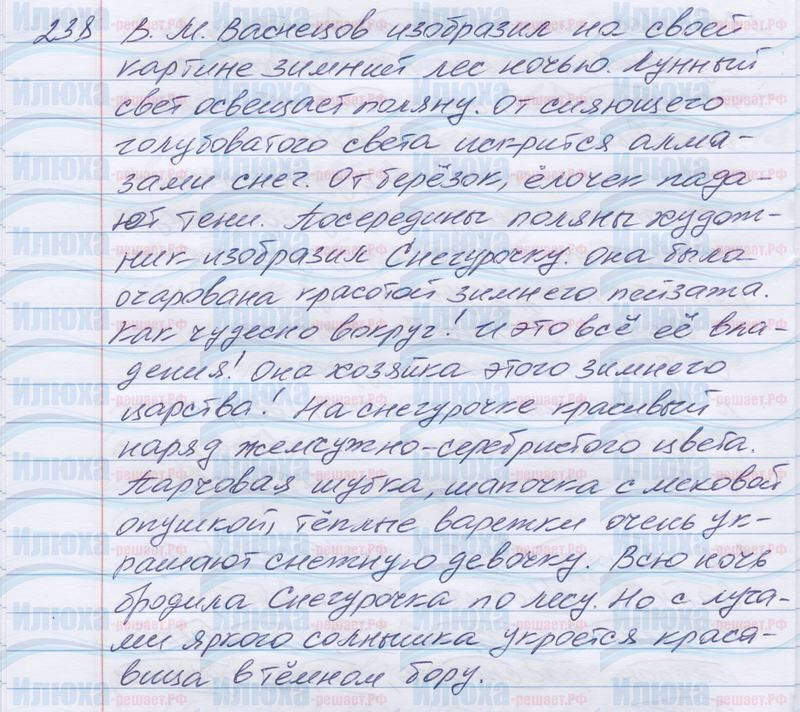 238 В. М. Васнецов изобразил на своей
картине зимний лес ночью. Лунный
свет освещает поляну. От сияющего
голубоватого света искрится алма-
зами снег. От берёзок, ёлочек пада-
ют тени. Посередины поляны худож-
ник изобразил Снегурочку. Она была
очарована красотой зимнего пейзажа.
Как чудесно вокруг! И это всё её вла-
дения! Она хозяйка этого зимнего
царства! На снегурочке красивый
наряд жемчужно-серебристого цвета.
Парчовая шубка, шапочка с меховой
опушкой, тёплые варежки очень ук-
рашают снежную девочку. Всю ночь
бродила Снегурочка по лесу. Но с луча-
ми яркого солнышка укроется краса-
вица в тёмном бору.
Илюха-решает.РФ